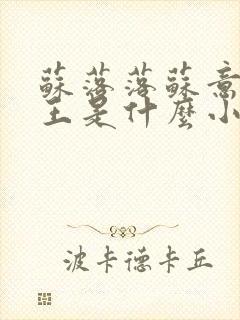 蘇落落蘇意
王是什麼小
波卡德卡丘